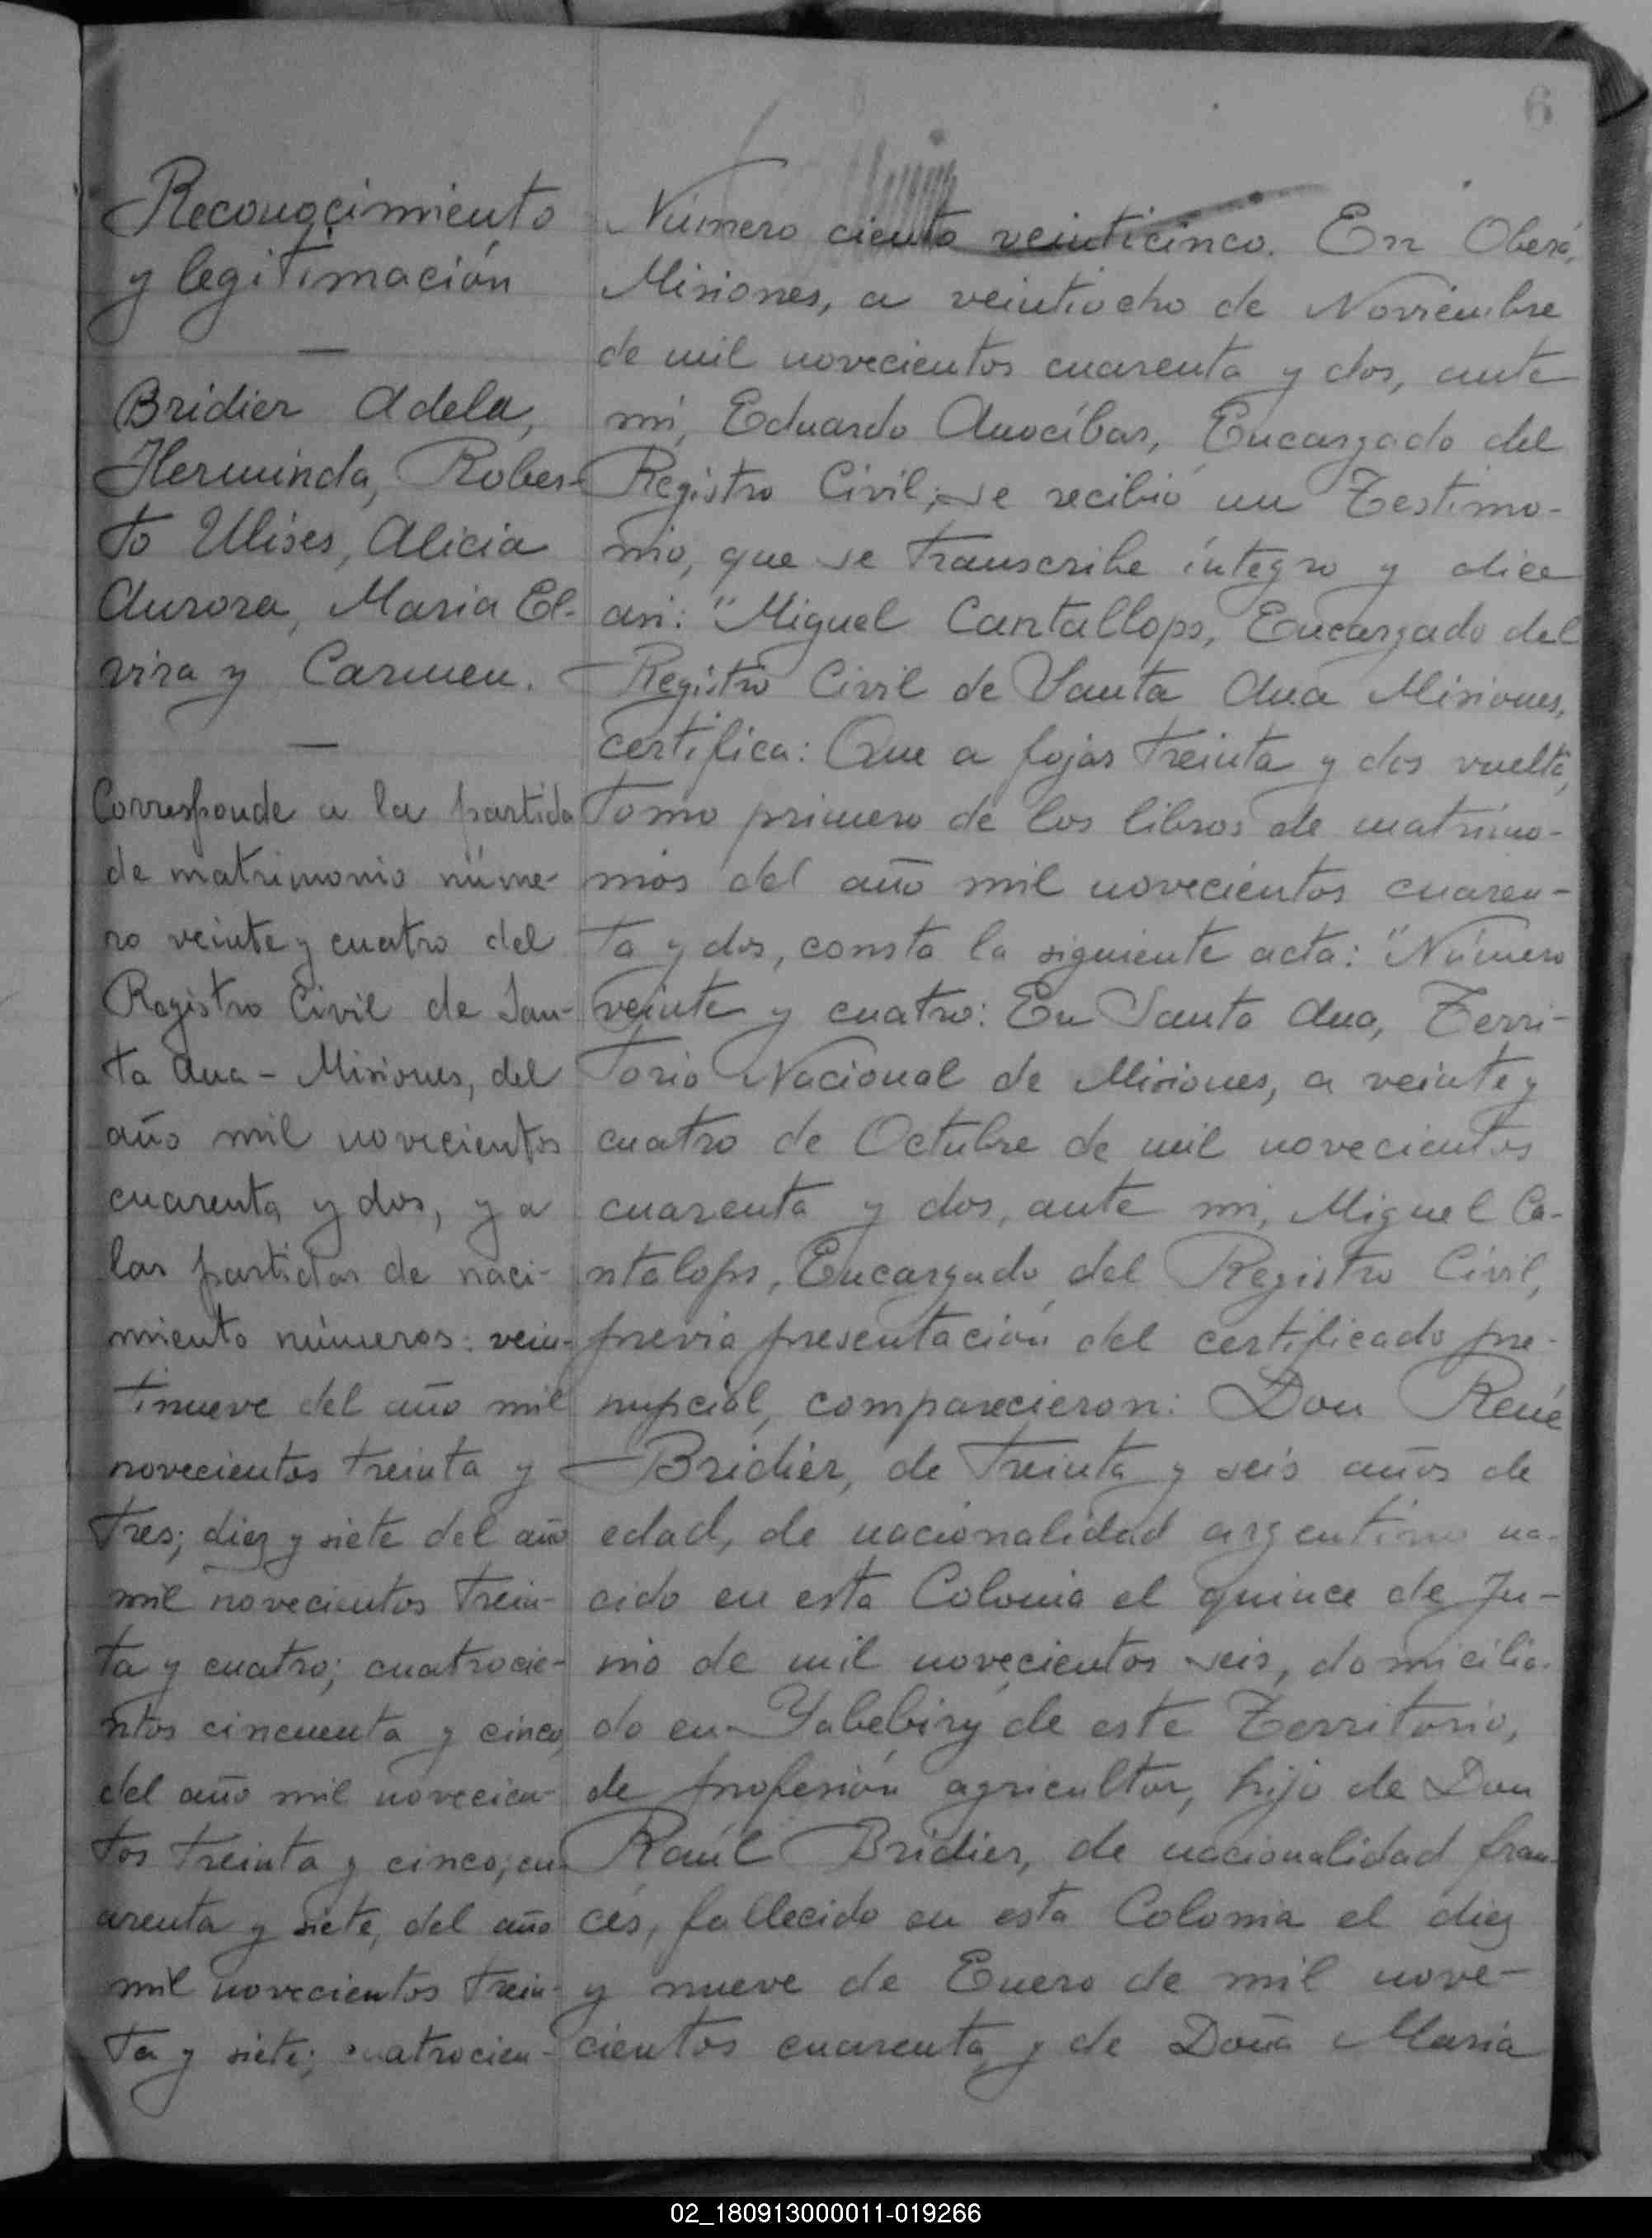 6
Reconocimiento
y legitimación
—
Bridier Adela,
Herminda, Rober-
to Ulises, Alicia
Aurora, Maria El-
vira y Carmen.
—
Corresponde a la partida
de matrimonio núme-
ro veinte y cuatro del
Registro Civil de San-
ta Ana - Misiones, del
año mil novecientos
cuarenta y dos, y a
las partidas de naci-
miento números: vein-
tinueve del año mil
novecientos treinta y
tres; diez y siete del año
mil novecientos trein-
ta y cuatro; cuatrocie-
ntos cincuenta y cinco,
del año mil novecien-
tos treinta y cinco; cu-
arenta y siete, del año
mil novecientos trein-
ta y siete; cuatrocien-
Número ciento veinticinco. En Oberá,
Misiones, a veintiocho de Noviembre
de mil novecientos cuarenta y dos, ante
mí, Eduardo Anocíbar, Encargado del
Registro Civil, se recibió un Testimo-
nio, que se transcribe íntegro y dice
asi: "Miguel Cantallops, Encargado del
Registro Civil de Santa Ana Misiones,
certifica: Que a fojas treinta y dos vuelta,
tomo primero de los libros de matrimo-
nios del año mil novecientos cuaren-
ta y dos, consta la siguiente acta: "Número
veinte y cuatro: En Santa Ana, Terri-
torio Nacional de Misiones, a veinte y
cuatro de Octubre de mil novecientos
cuarenta y dos, ante mi, Miguel Ca-
ntalops, Encargado del Registro Civil,
previa presentación del certificado pre-
nupcial, comparecieron: Don René
Bridier, de treinta y seis años de
edad, de nacionalidad argentino na-
cido en esta Colonia el quince de Ju-
nio de mil novecientos seis, domicilia-
do en Yabebiry de este Territorio,
de profesión agricultor, hijo de Don
Raúl Bridier, de nacionalidad fran-
cés, fallecido en esta Colonia el diez
y nueve de Enero de mil nove-
cientos cuarenta y de Doña Maria
02_180913000011-019266